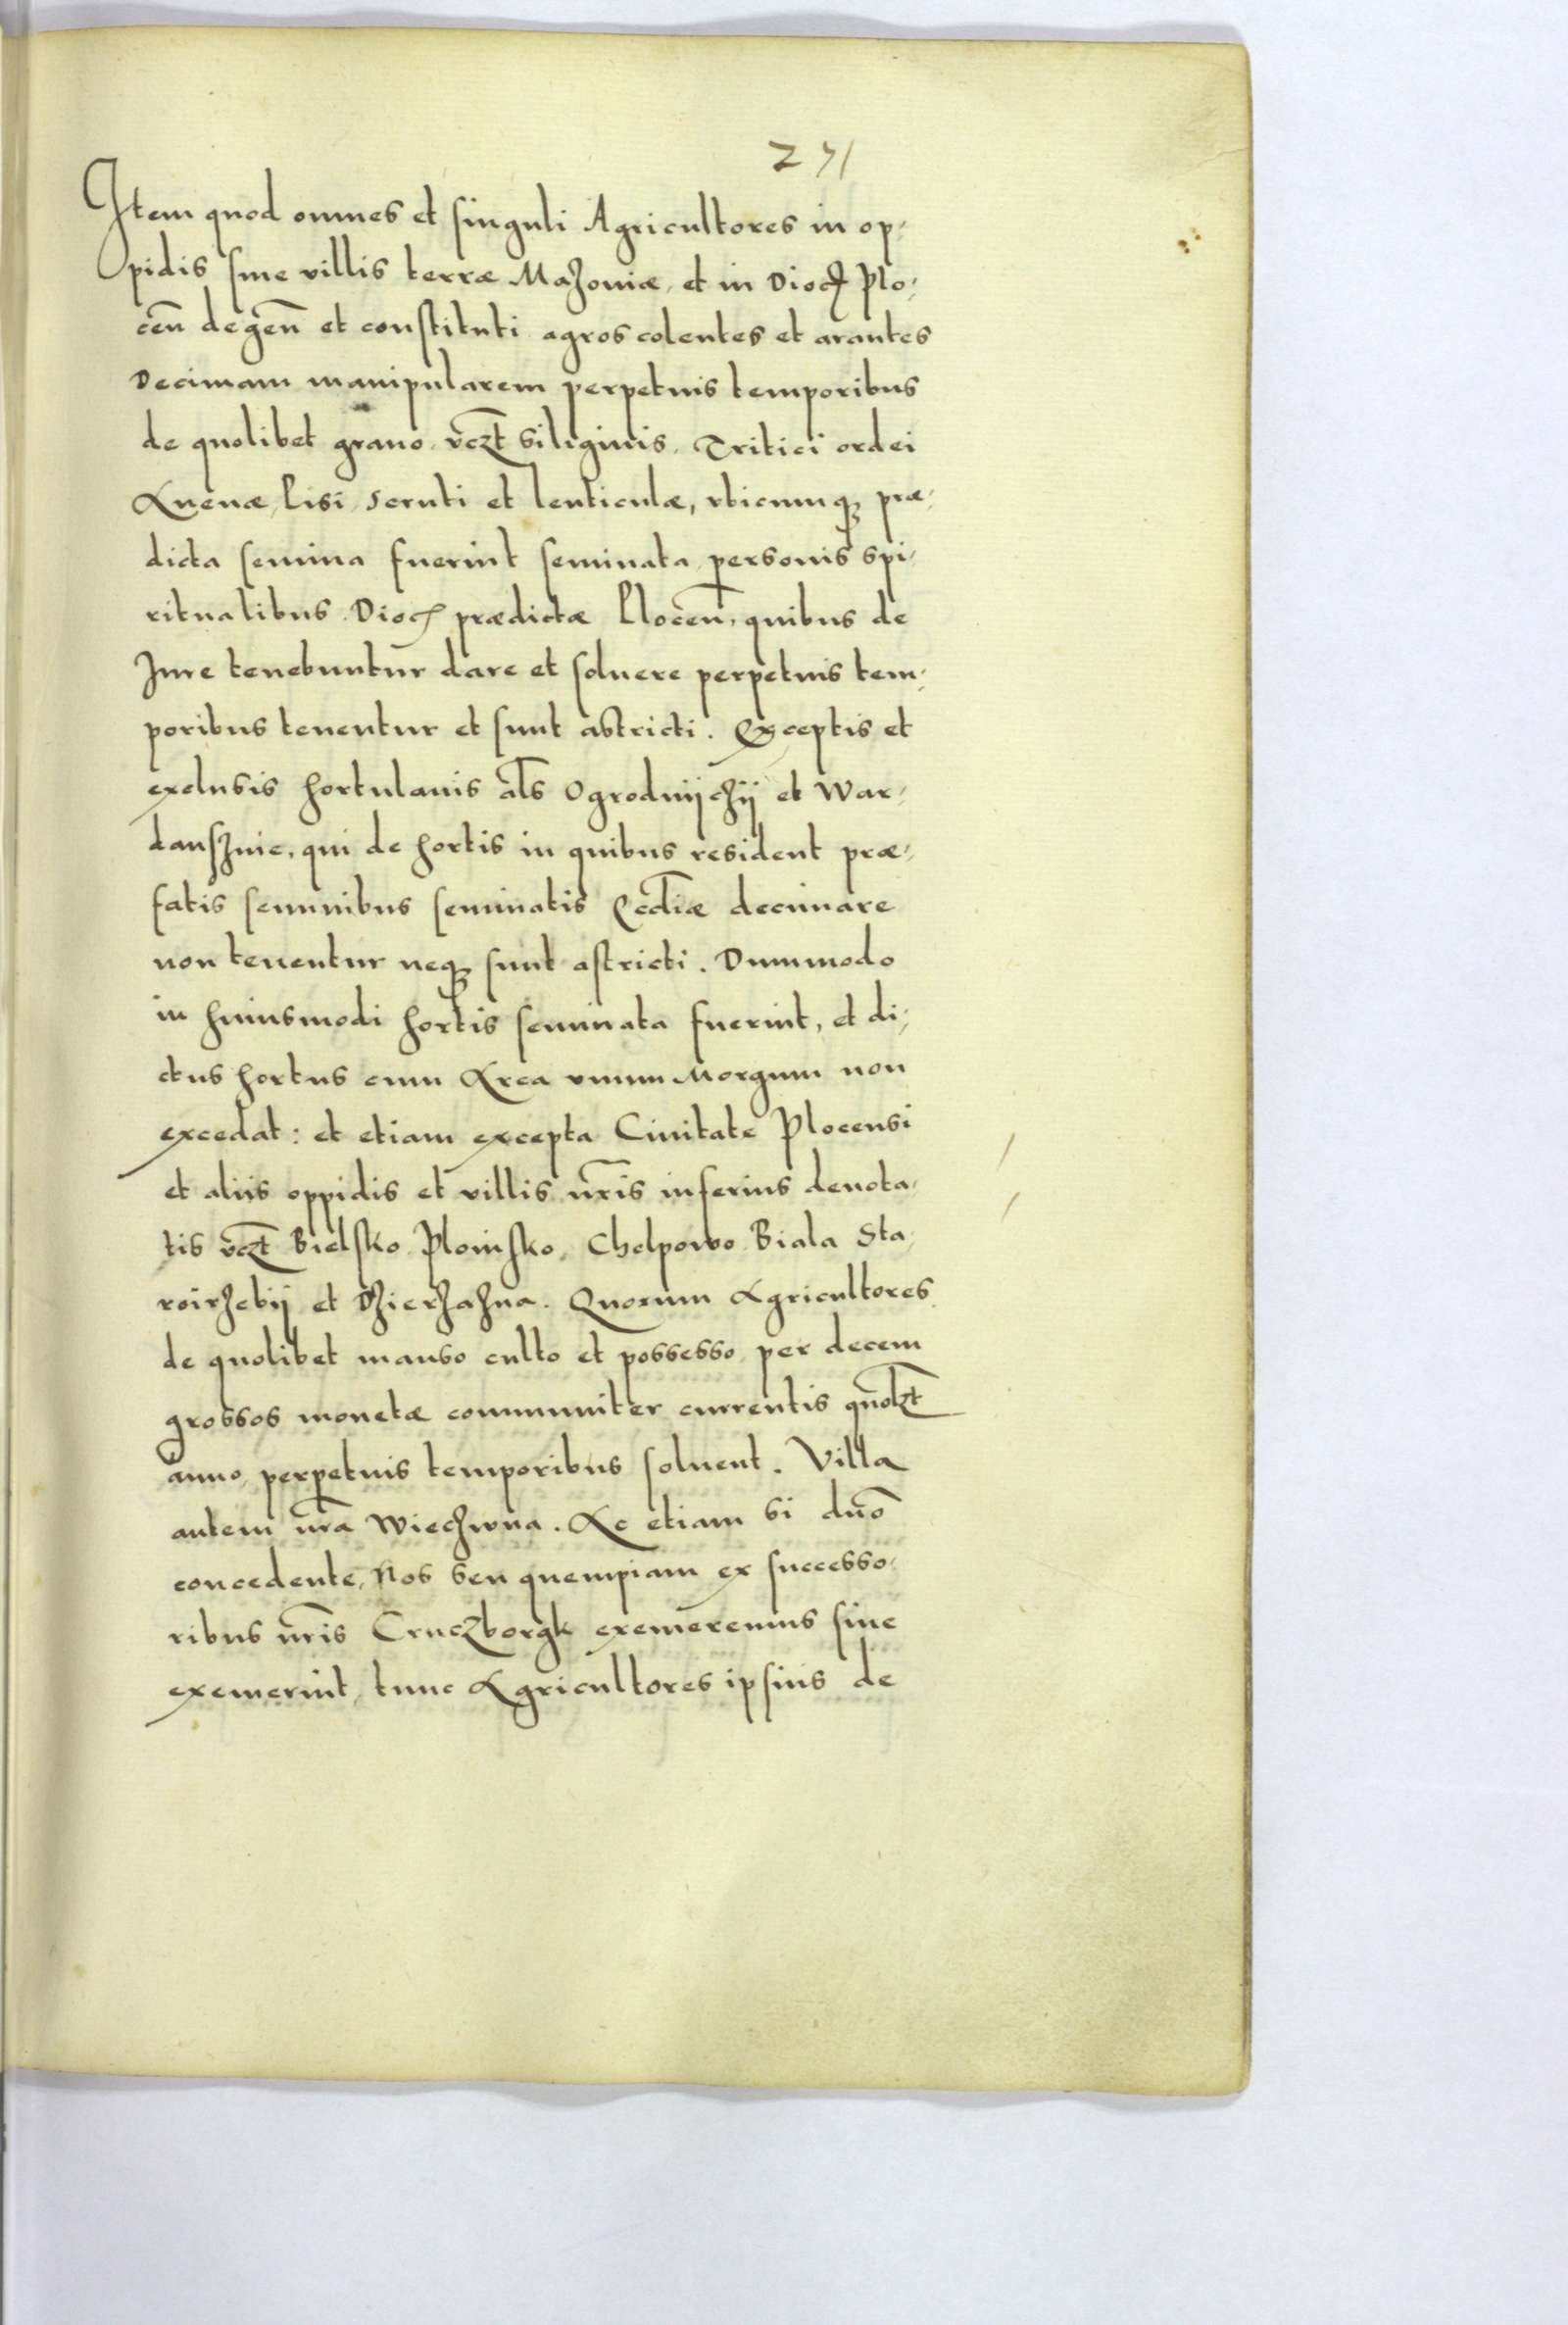 271
Item quod omnes et singuli Agricultores in op-
pidis siue villis terræ Mazouiæ, et in Dioc. Plo-
cen̄ degen̄ et constituti agros colentes et arantes
Decimam manipularem perpetuis temporibus
de quolibet grano vczt̄ siliginis, Tritici ordei
Auenæ, Pisi, Scruti et lenticulæ, vbicumq; præ-
dicta semina fuerint seminata, personis spi-
ritualibus Dioc. prædictæ Plocen̄, quibus de
Iure tenebuntur dare et soluere perpetuis tem-
poribus tenentur et sunt abstricti. Exceptis et
exclusis hortulanis al̄s Ogrodnijchij et War-
dansznie, qui de hortis in quibus resident præ-
fatis seminibus seminatis Eccl̄iæ decimare
non tenentur neq; sunt astricti. Dummodo
in huiusmodi hortis seminata fuerint, et di-
ctus hortus cum Area vnum Morgum non
excedat: et etiam excepta Ciuitate Plocensi
et aliis oppidis et villis nr̄is inferius denota-
tis vczt̄ Bielsko Ploinsko, Chelpowo Biala Sta-
roirzebij et Dzierzazna. Quorum Agricultores
de quolibet manso culto et possesso, per decem
grossos monetæ communiter currentis quolzt̄
anno, perpetuis temporibus soluent. Villa
autem nr̄a Wiechwna. Ac etiam si dn̄o
concedente, Nos seu quempiam ex successo-
ribus nr̄is Cruczborgk exemeremus siue
exemerint, tunc Agricultores ipsius de